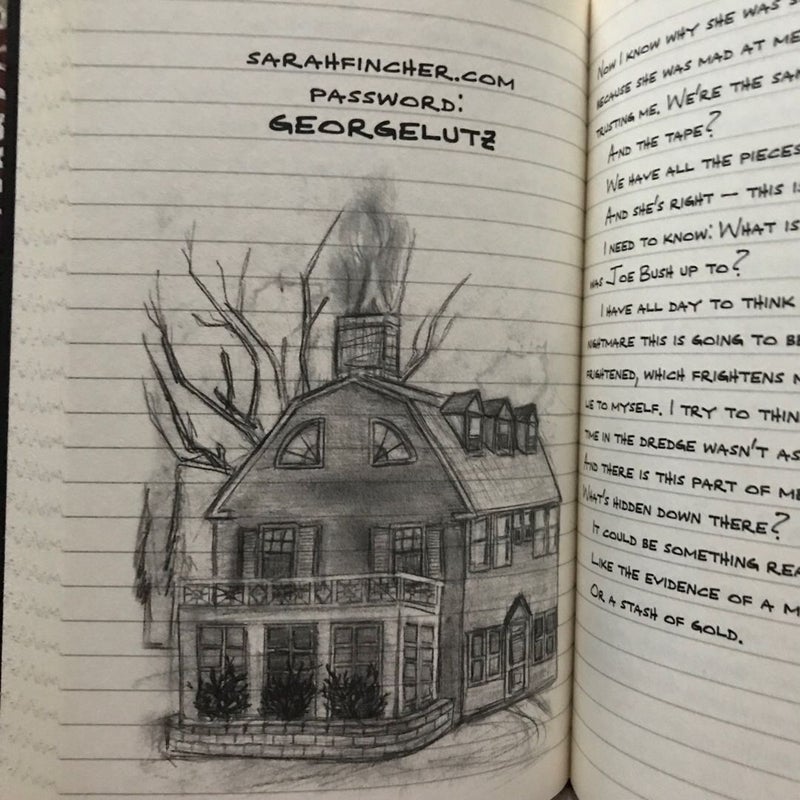 SARAHFINCHER.COM
PASSWORD:
GEORGELUTZ
NOW I KNOW WHY SHE WAS
BECAUSE SHE WAS MAD AT ME
TRUSTING ME. WE'RE THE
AND THE TAPE?
WE HAVE ALL THE PIECES
AND SHE'S RIGHT — THIS
I NEED TO KNOW: WHAT IS
WAS JOE BUSH UP TO?
I HAVE ALL DAY TO THINK
NIGHTMARE THIS IS GOING TO
FRIGHTENED, WHICH FRIGHTENS
LIE TO MYSELF. I TRY TO
TIME IN THE DREDGE WASN'T
AND THERE IS THIS PART OF
WHAT'S HIDDEN DOWN THERE?
IT COULD BE SOMETHING
LIKE THE EVIDENCE OF A
OR A STASH OF GOLD.